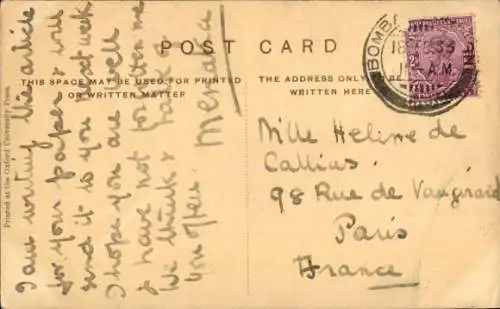 POST CARD
THIS SPACE MAY BE USED FOR PRINTED
OR WRITTEN MATTER
THE ADDRESS ONLY
WRITTEN HERE
Printed at the Oxford University Press.
BOMBA
18 FEB 33
A.M.
I am writing the article
for your paper & will
send it to you next week
I hope you are well
& have not forgotten me
We think & talk of
you often.
Mlle Helene de
Callias.
98 Rue de Vaugirard
Paris
France